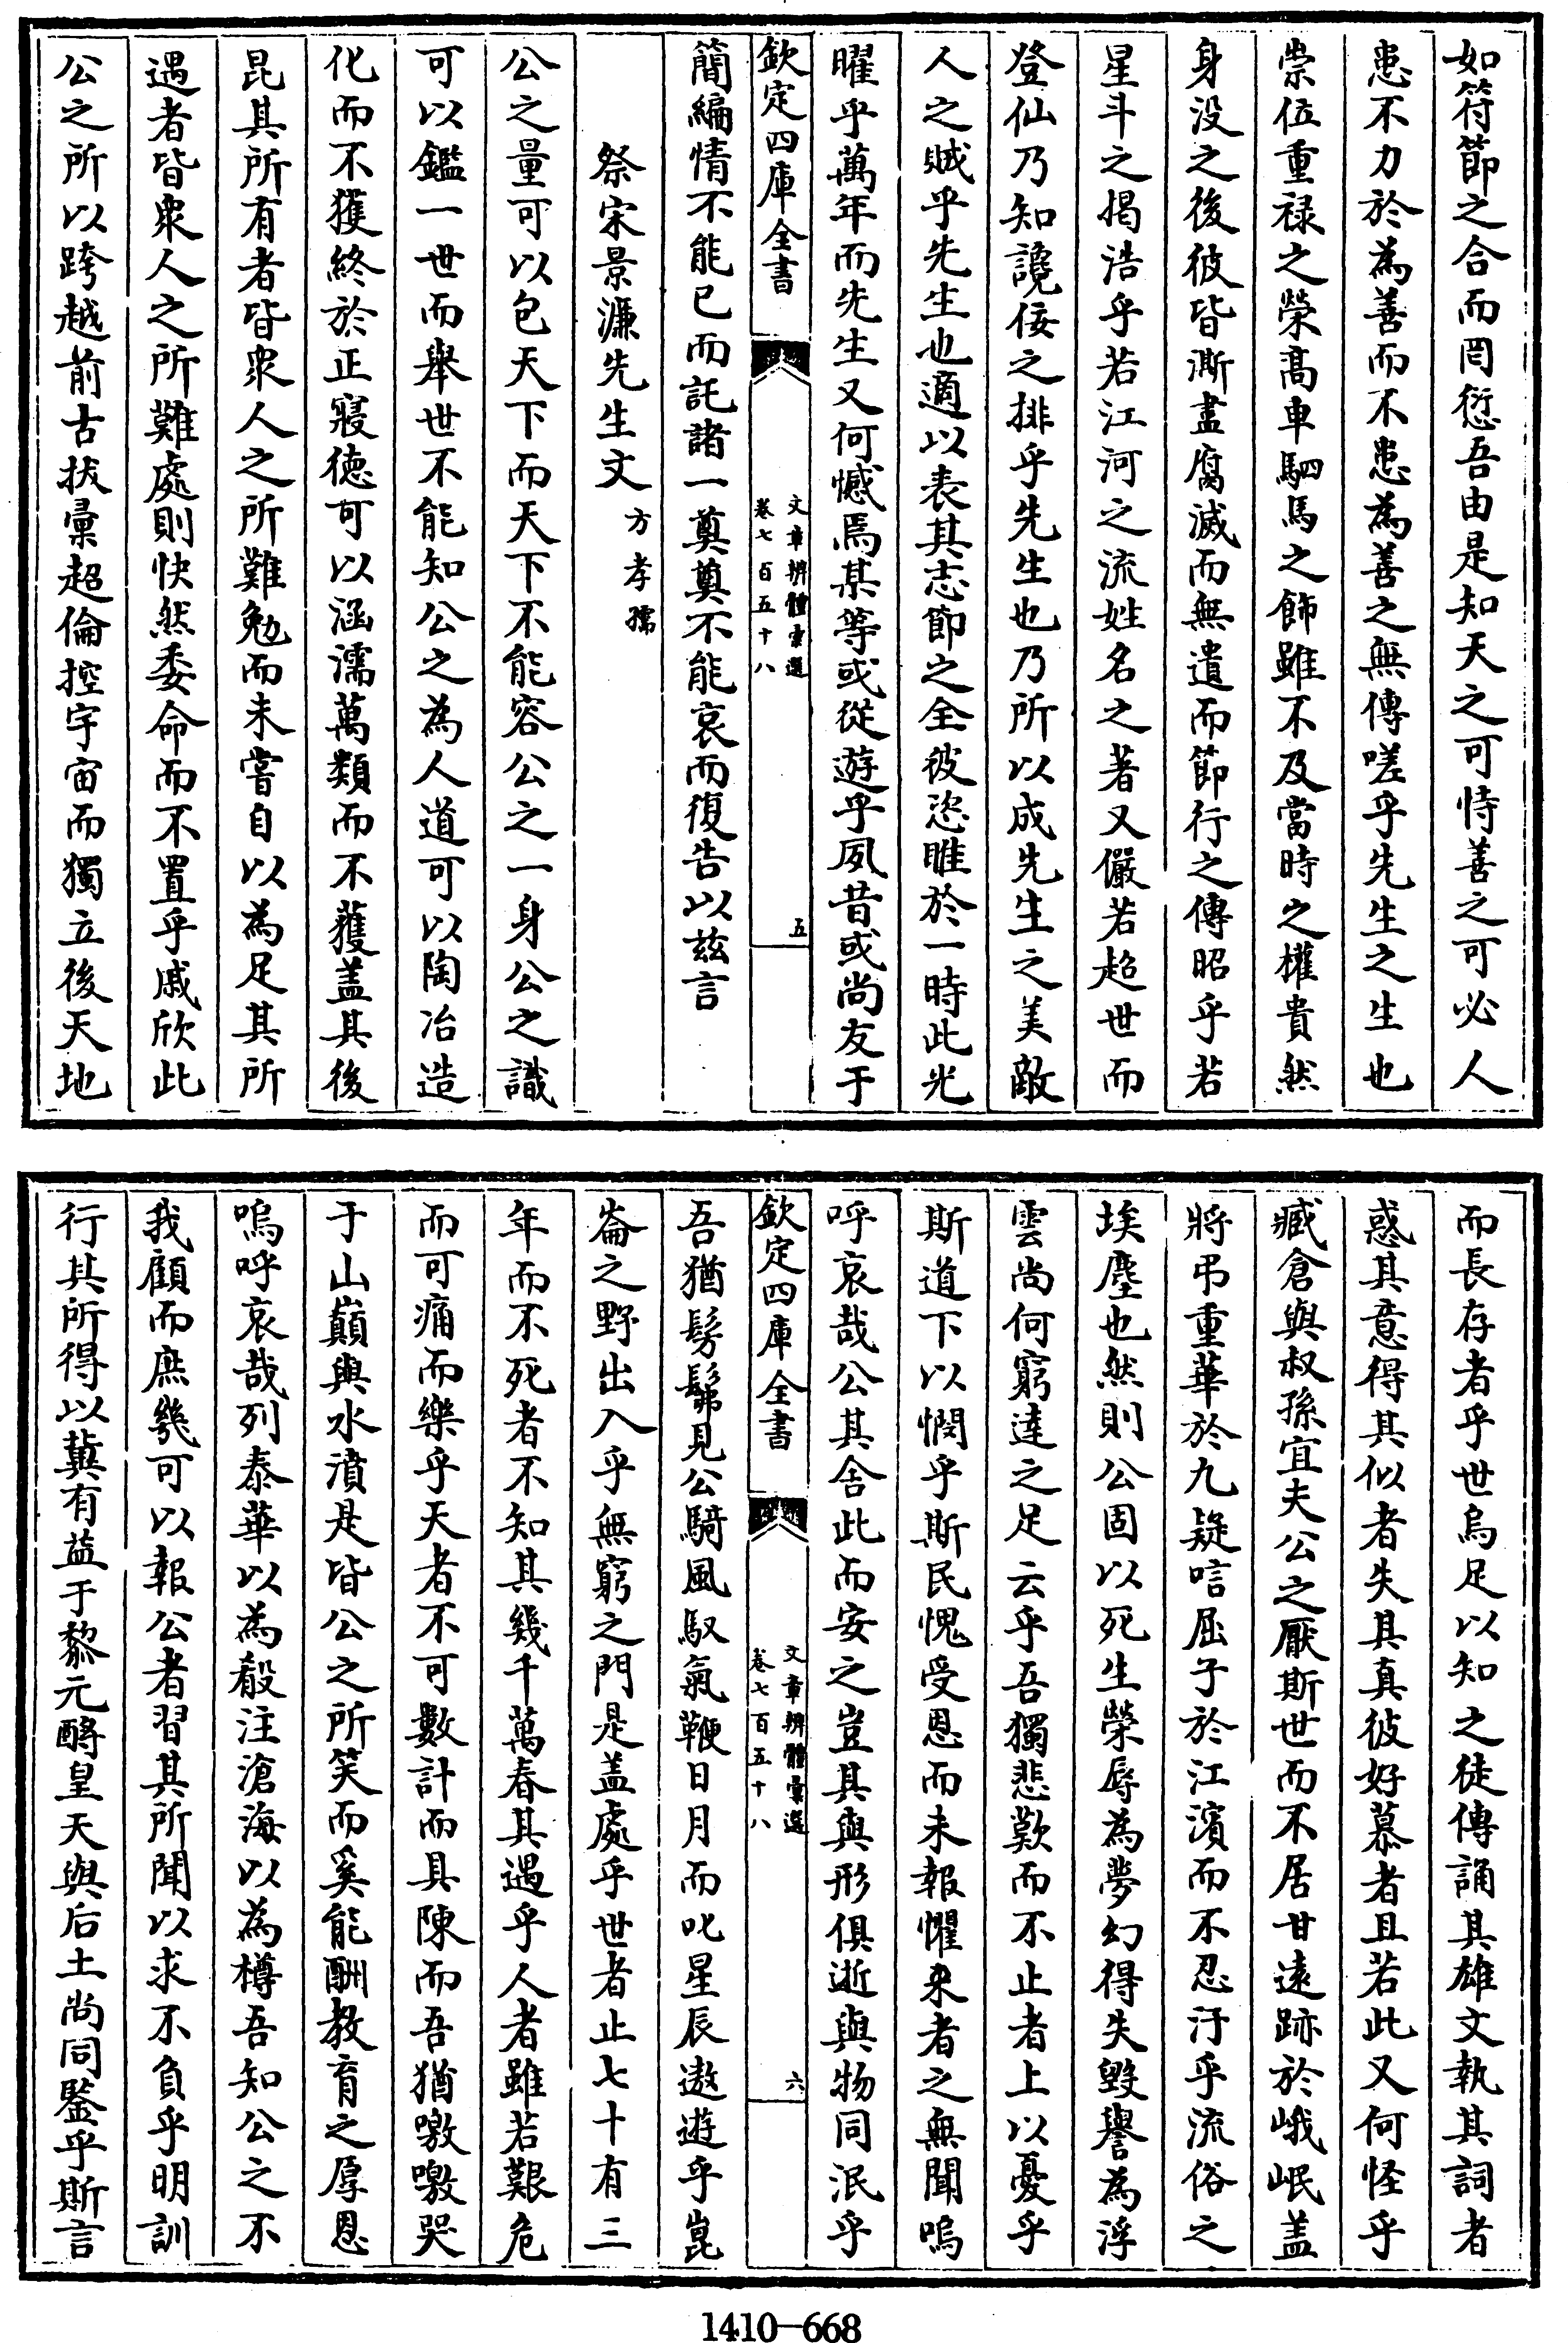 如符節之合而罔愆吾由是知天之可恃善之可必人
患不力於為善而不患為善之無傳嗟乎先生之生也
崇位重禄之榮髙車駟馬之飾雖不及當時之權貴然
身没之後彼皆澌盡腐滅而無遺而節行之傳昭乎若
星斗之揭浩乎若江河之流姓名之著又儼若超世而
登仙乃知讒佞之排乎先生也乃所以成先生之美敵
人之賊乎先生也適以表其志節之全彼恣睢於一時此光
曜乎萬年而先生又何憾焉某等或從遊乎夙昔或尚友于
欽定四庫全書
文章辨體彙選
卷七百五十八
五
簡編情不能已而託諸一奠奠不能哀而復告以兹言
祭宋景濂先生文
方孝孺
公之量可以包天下而天下不能容公之一身公之識
可以鑑一世而舉世不能知公之為人道可以陶冶造
化而不獲終於正寢徳可以涵濡萬類而不蓋其後
昆其所有者皆衆人之所難勉而未嘗自以為足其所
遇者皆衆人之所難處則怏然委命而不置乎戚欣此
公之所以跨越前古拔彙超倫控宇宙而獨立後天地
而長存者乎世烏足以知之徒傳誦其雄文執其詞者
惑其意得其似者失其真彼好慕者且若此又何怪乎
臧倉與叔孫宜夫公之厭斯世而不居甘逺跡於峨岷盖
將弔重華於九疑唁屈子於江濱而不忍汙乎流俗之
埃塵也然則公固以死生榮辱為夢幻得失毀譽為浮
雲尚何窮達之足云乎吾獨悲歎而不止者上以憂乎
斯道下以憫乎斯民愧受恩而未報懼來者之無聞嗚
呼哀哉公其舍此而安之豈其與形俱逝與物同泯乎
欽定四庫全書
文章辨體彙選
卷七百五十八
六
吾猶髣髴見公騎風馭氣鞭日月而叱星辰遨遊乎崑
崙之野出入乎無窮之門是盖處乎世者止七十有三
年而不死者不知其幾千萬春其遇乎人者雖若艱危
而可痛而樂乎天者不可數計而具陳而吾猶噭噭哭
于山巔與水濆是皆公之所笑而奚能酬教育之厚恩
嗚呼哀哉列泰華以為殽注滄海以為樽吾知公之不
我顧而庶幾可以報公者習其所聞以求不負乎明訓
行其所得以冀有益于黎元酹皇天與后土尚同鑒乎斯言
1410—668